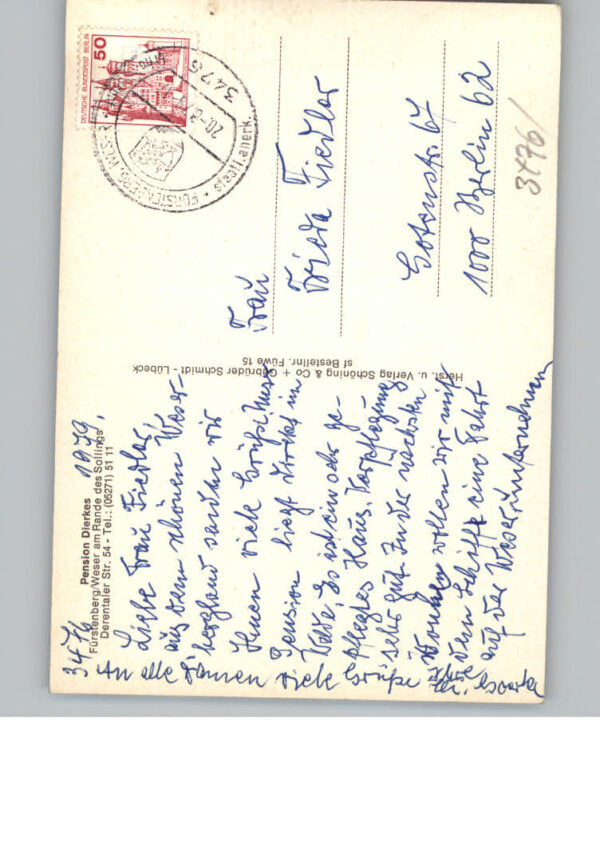 Pension Dierkes
Fürstenberg/Weser am Rande des Sollings
Derentaler Str. 54 - Tel.: (05271) 51 11
3476 1979.
Liebe Frau Fiedler,
aus dem schönen Weser-
bergland senden wir
Ihnen viele Grüße. Unsere
Pension liegt direkt im
Walde, es ist ein sehr ge-
pflegtes Haus. Verpflegung
sehr gut. In der nächsten
Woche wollen wir mit
dem Schiff eine Fahrt
auf der Weser unternehmen
An alle Damen viele Grüße Ihre
Herst. u. Verlag Schöning & Co + Gebrüder Schmidt - Lübeck
sf Bestellnr. Füwe 15
DEUTSCHE BUNDESPOST BERLIN
50
3476
FÜRSTENBERG, WESER
staatl. anerk.
20.-8
Frau
Frieda Fiedler
Gotenstr. 67
1000 Berlin 62
3476/